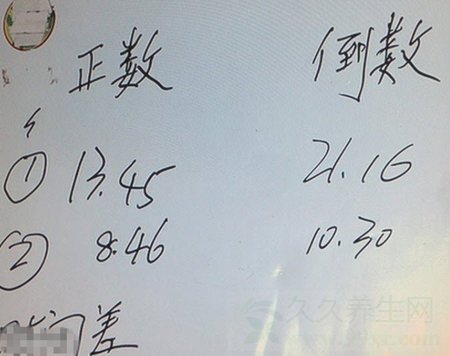 正数 倒数
① 13.45 21.16
② 8.46 10.30
差
久久养生网